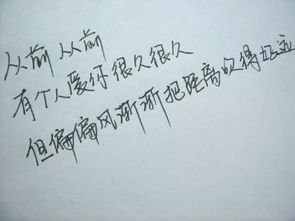 从前 从前
有个人爱你很久很久
但偏偏风渐渐把距离吹得好远